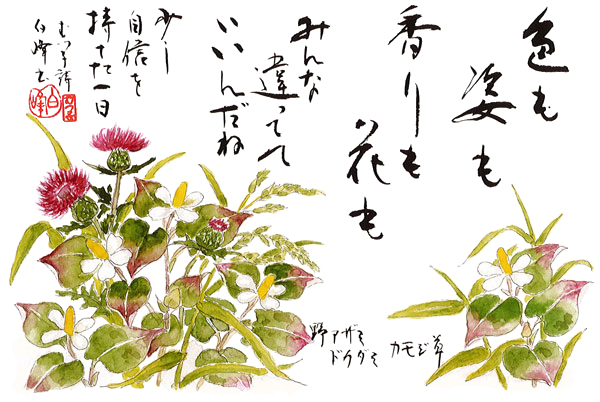 色も
姿も
香りも
花も
みんな
違って
いいんだね
少し
自信を
持てた一日
むつ子詩
白峰書
野アザミ
ドクダミ
カモジ草